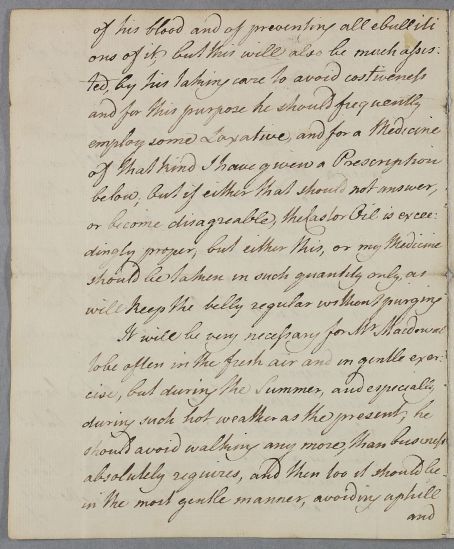 of his blood and of preventing all ebulliti
ons of it but this will also be much assis:
ted, by his taking care to avoid costiveness
and for this purpose he should frequently
employ some Laxative, and for a Medicine
of that Kind I have given a Prescription
below, but if either that should not answer,
or become disagreable, the Castor Oil is excee:
dingly proper, but either this, or my Medicine
should be taken in such quantity only, as
will keep the belly regular without purging
It will be very necessary for Mr. Macdowal
to be often in the fresh air and in gentle exer:
cise, but during the Summer, and especially
during such hot weather as the present, he
should avoid walking any more, than business
absolutely requires, and then too it should be
in the most gentle manner, avoiding uphill
and